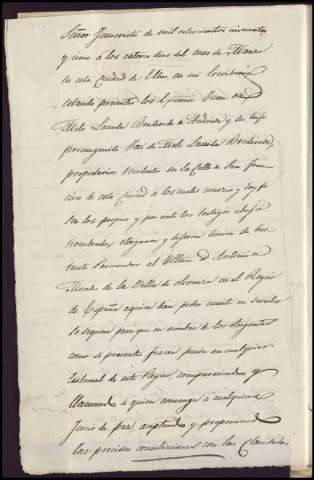 Señor Jesucristo de mil ochocientos cincuenta
y cinco á los catorce dias del mes de Marzo
en esta Ciudad de en mi Escribanía
estando presentes los Señores Juan de
Mello Lacerda y su hijo
primogenito José de Mello Lacerda
propietarios residentes en la Calle de San Fran-
cisco de esta Ciudad á los cuales conozco y doy fe
ser los propios y por ante los testigos abajo
nombrados, otorgaron y dijeron hacian su bas-
tante Procurador al D. Antonio
de la Villa de Olivenza en el Reyno
de España a quien dan poder cuanto en derecho
se requiere para que en nombre de los otorgantes
como si presentes fuesen pueda en cualquiera
tribunal de este Reyno, compareciendo y
llamando á quien convenga á cualquiera
Juicio de paz, aceptando y proponiendo
las precisas conciliaciones con las clausulas